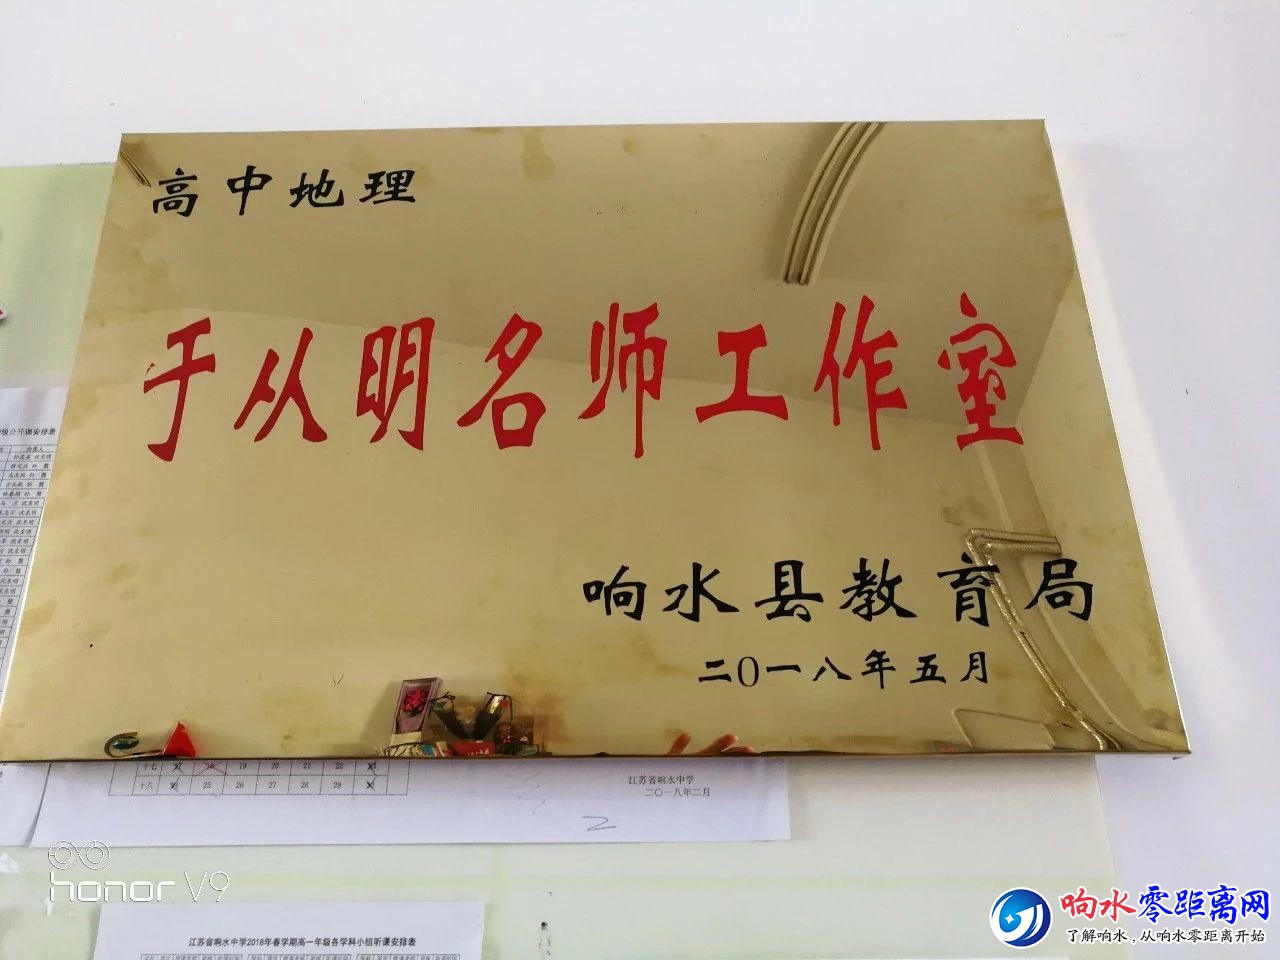 高中地理
于从明名师工作室
响水县教育局
二〇一八年五月
级公开课安排表
负责人
十七 19 20 21 22
十八 25 26 27 28 29
江苏省响水中学
二〇一八年二月
honor V9
江苏省响水中学2018年春学期高一年级各学科小组听课安排表
响水零距离网
了解响水，从响水零距离开始